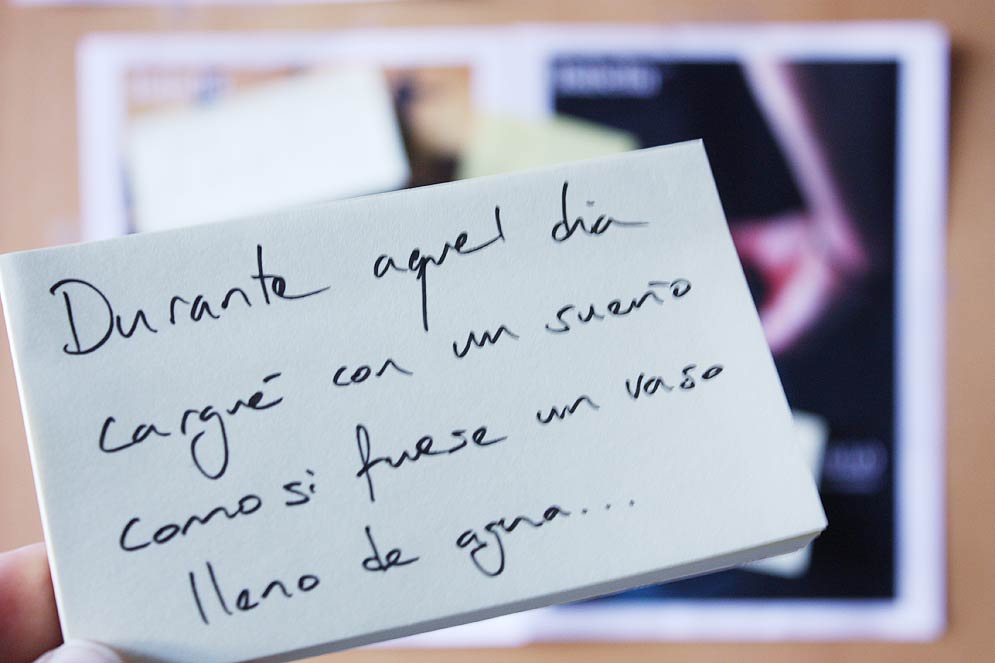 Durante aquel dia
cargué con un sueño
como si fuese un vaso
lleno de agua...